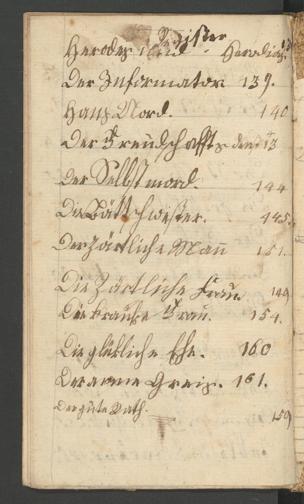 Register
Herodes und Herodias.
Der Informator 139.
Hanß Nord. 140
Der Freundschaffts
Der Selbstmord. 144
Die Bättschwester. 145.
Der Zärtliche Mañ 151.
Die Zärtliche Frau 149
Die kranke Frau. 154.
Die glükliche Ehe. 160
Der arme Greiß. 161.
Der gute Rath. 159